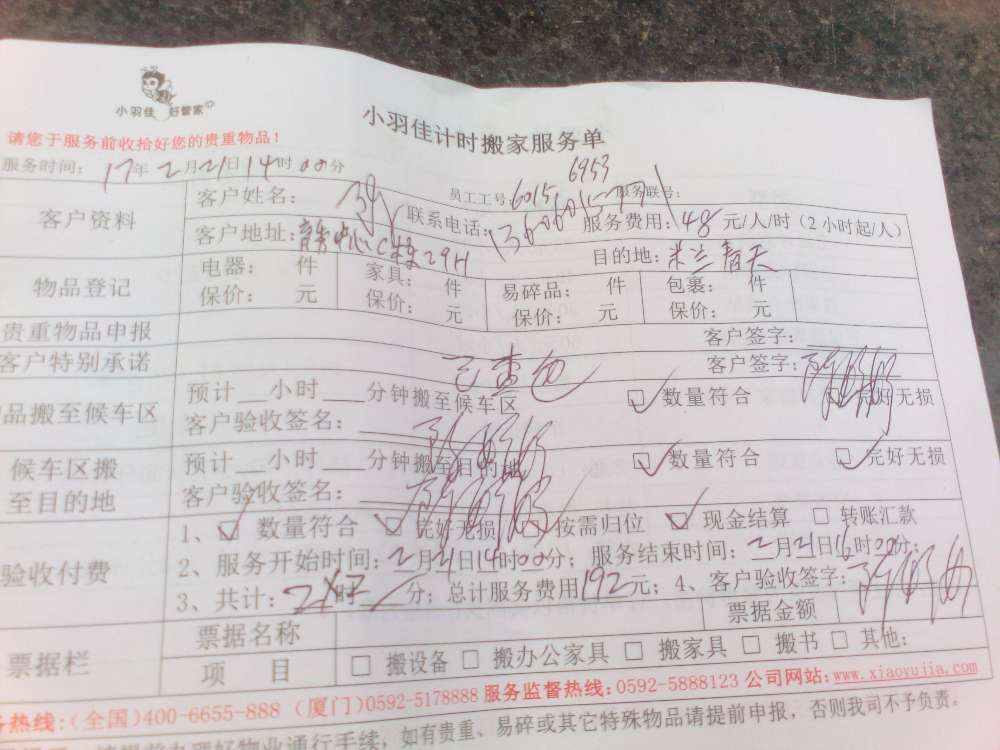 小羽佳 好管家
小羽佳计时搬家服务单
请您于服务前收拾好您的贵重物品！
服务时间：17年2月21日14时00分
员工工号：6015 6953 服务联号：
客户资料
客户姓名： 联系电话： 服务费用：48元/人/时（2小时起/人）
客户地址： 中心C栋29H 目的地：米兰春天
物品登记
电器： 件 家具： 件 易碎品： 件 包裹： 件
保价： 元 保价： 元 保价： 元 保价： 元
贵重物品申报 客户签字：
客户特别承诺 已查包 客户签字：
品搬至候车区
预计 小时 分钟搬至候车区 数量符合 完好无损
客户验收签名：
候车区搬至目的地
预计 小时 分钟搬至目的地 数量符合 完好无损
客户验收签名：
验收付费
1、 数量符合 完好无损 按需归位 现金结算 转账汇款
2、服务开始时间：2月21日14时00分；服务结束时间：2月21日16时00分；
3、共计： 时 分；总计服务费用192元；4、客户验收签字：
票据栏
票据名称 票据金额
项 目 搬设备 搬办公家具 搬家具 搬书 其他：
务热线：(全国)400-6655-888 (厦门)0592-5178888 服务监督热线：0592-5888123 公司网站：www.xiaoyujia.com
请提前办理好物业通行手续，如有贵重、易碎或其它特殊物品请提前申报，否则我司不予负责。